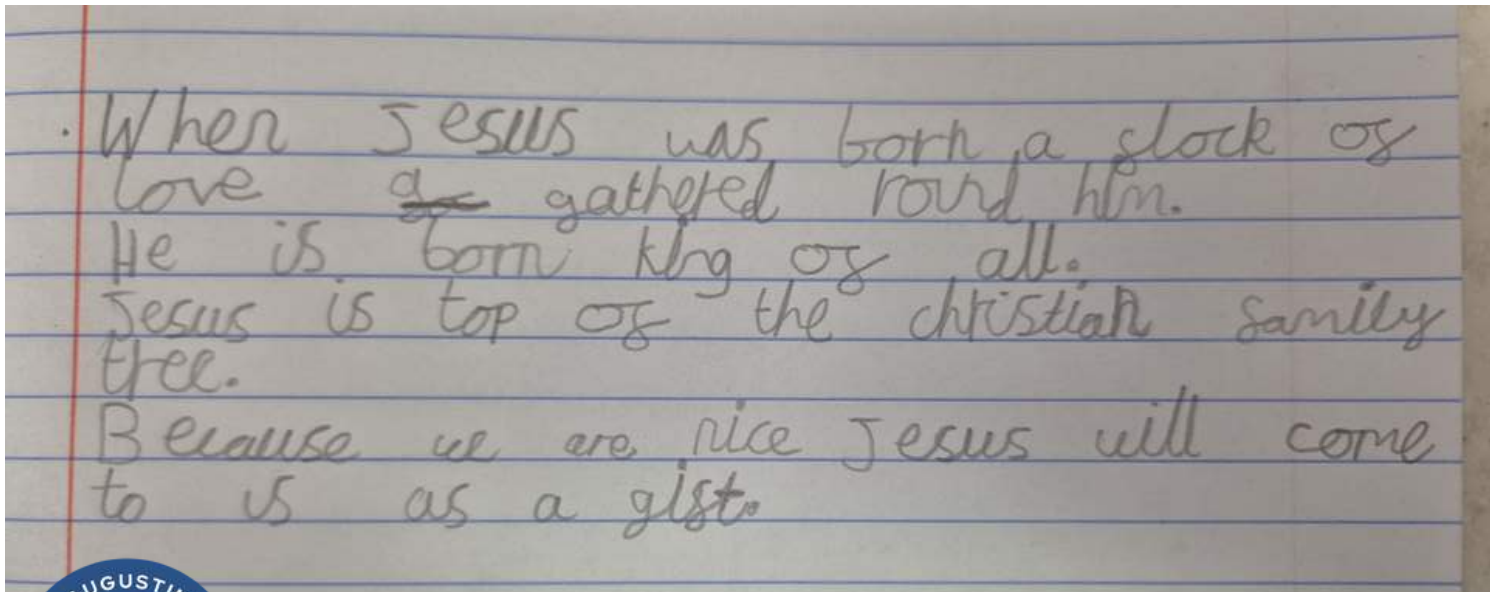 When Jesus was born a flock of
love gathered round him.
He is born king of all.
Jesus is top of the christian family
tree.
Because we are nice Jesus will come
to us as a gift.